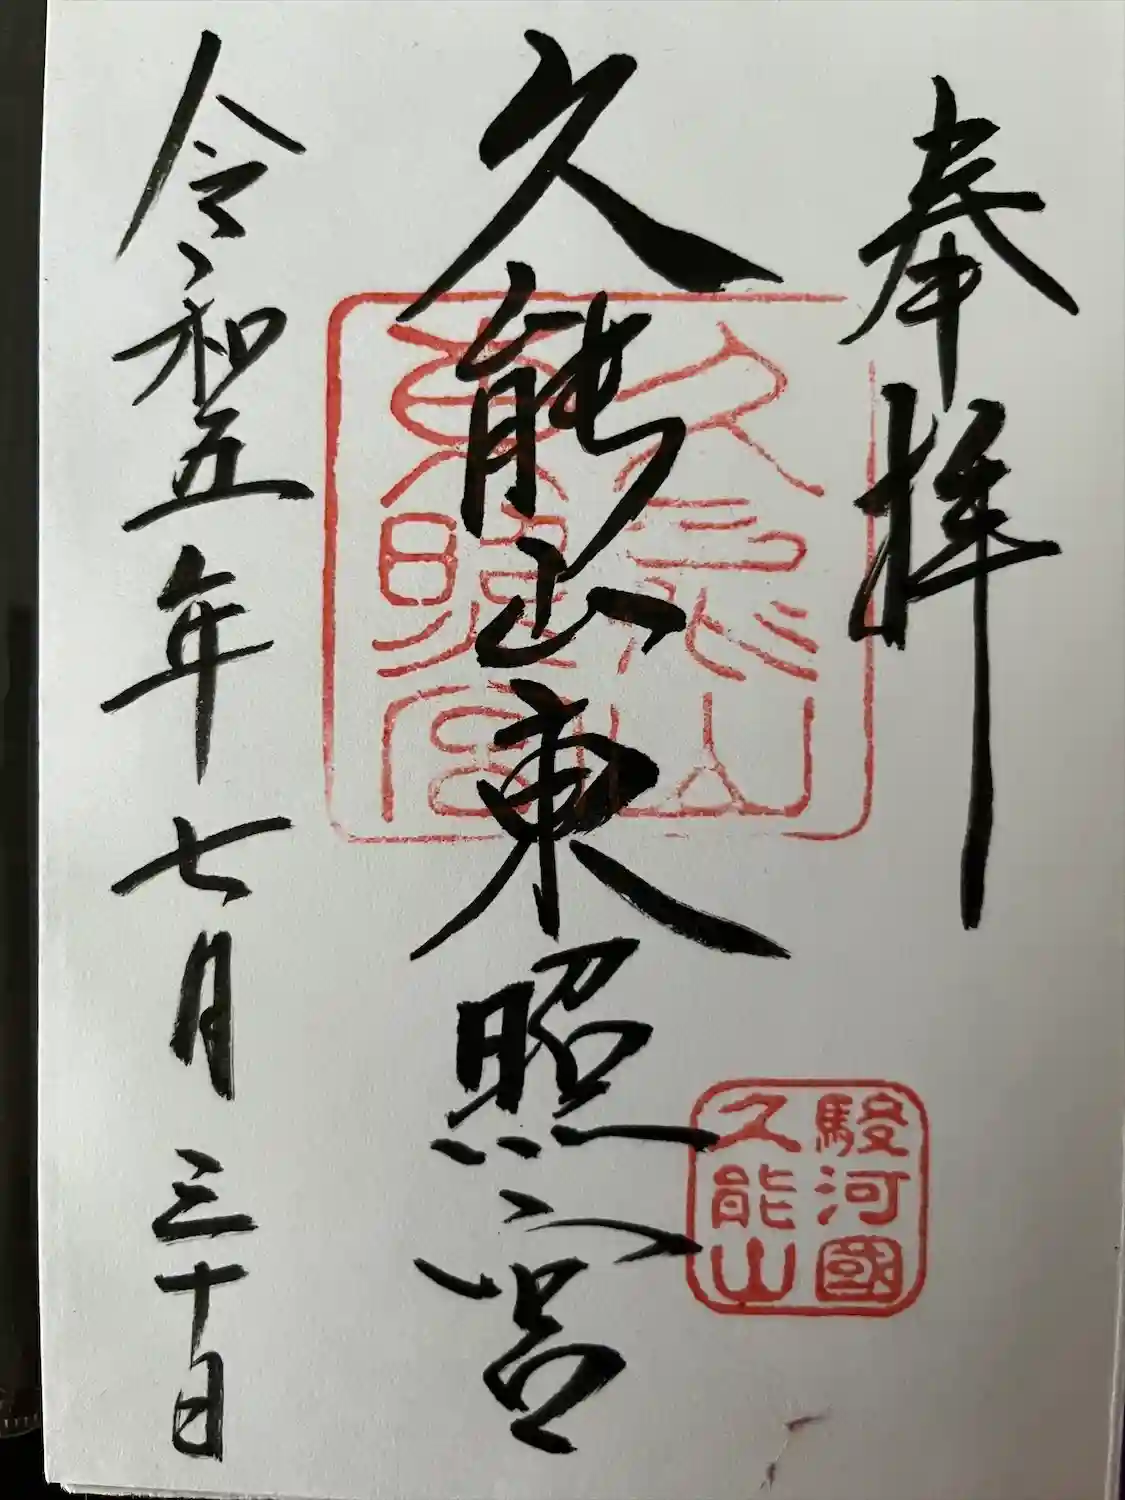 奉拝
久能山東照宮
久能山
東照宮
駿河國
久能山
令和五年七月三十日